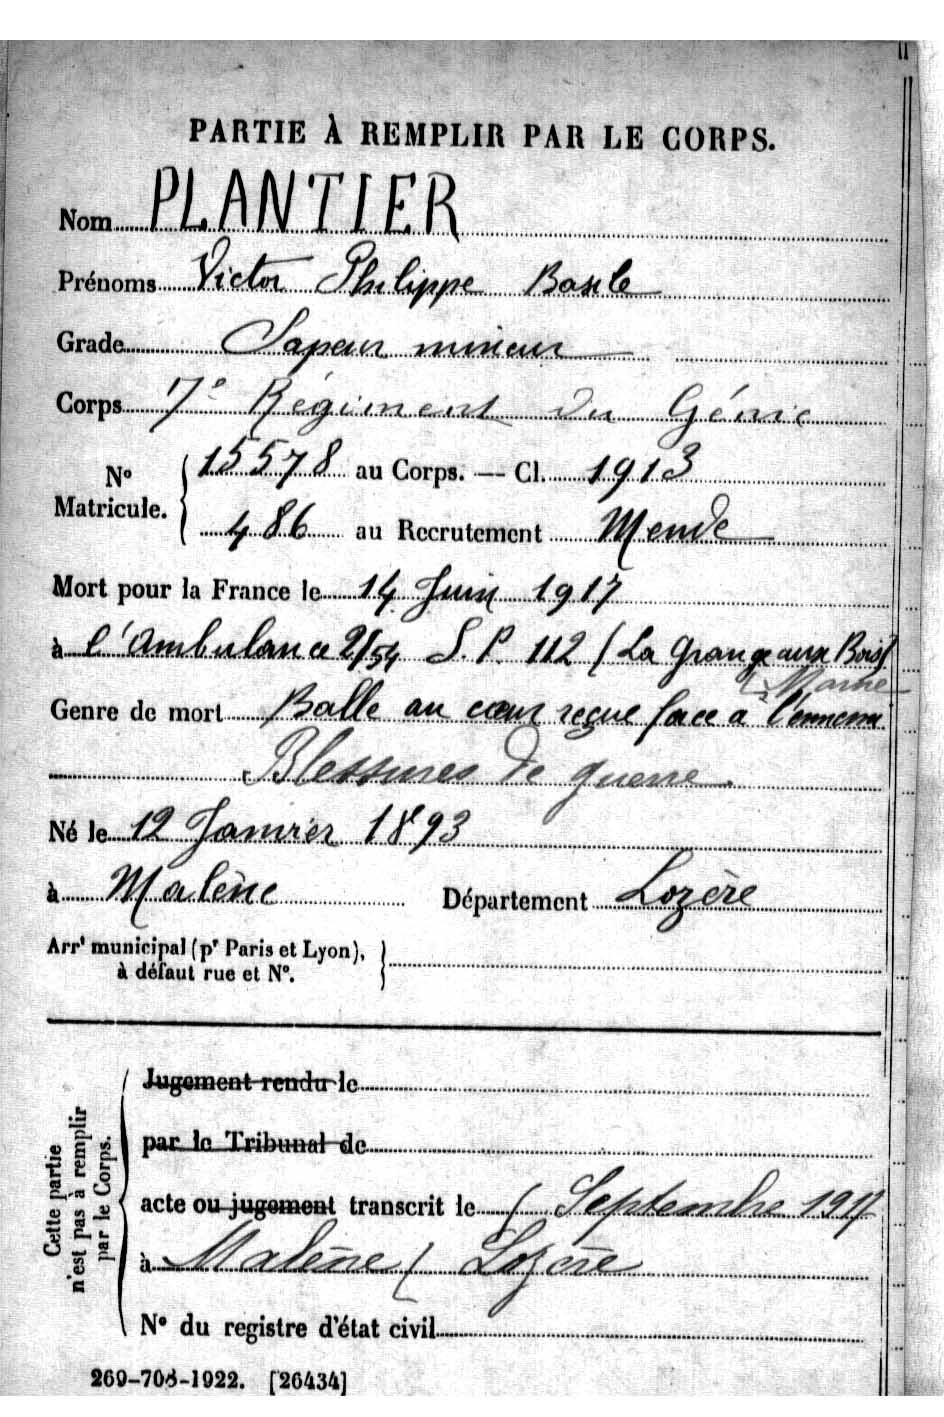 PARTIE À REMPLIR PAR LE CORPS.
Nom PLANTIER
Prénoms Victor Philippe Basile
Grade Sapeur mineur
Corps 7e Régiment du Génie
No Matricule. 15578 au Corps. — Cl. 1913
486 au Recrutement Mende
Mort pour la France le 14 Juin 1917
à l'Ambulance 2/54 S.P. 112 (La Grange aux Bois)
(Marne
Genre de mort Balle au cœur reçue face à l'ennemi
Blessures de guerre.
Né le 12 Janvier 1893
à Malène Département Lozère
Arrt municipal (pr Paris et Lyon),
à défaut rue et No.
Cette partie
n'est pas à remplir
par le Corps.
Jugement rendu le
par le Tribunal de
acte ou jugement transcrit le Septembre 1917
à Malène (Lozère
No du registre d'état civil
269-708-1922. [26434]